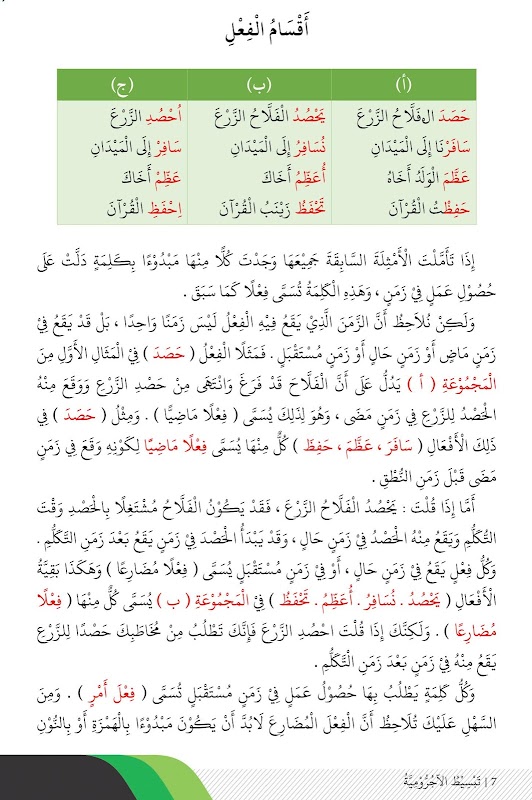 أَقْسَامُ الْفِعْلِ
(أ) (ب) (ج)
حَصَدَ الفَلَّاحُ الزَّرْعَ يَحْصُدُ الْفَلَّاحُ الزَّرْعَ اُحْصُدِ الزَّرْعَ
سَافَرْنَا إِلَى الْمَيْدَانِ نُسَافِرُ إِلَى الْمَيْدَانِ سَافِرْ إِلَى الْمَيْدَانِ
عَظَّمَ الْوَلَدُ أَخَاهُ أُعَظِّمُ أَخَاكَ عَظِّمْ أَخَاكَ
حَفِظْتُ الْقُرْآنَ تَحْفَظُ زَيْنَبُ الْقُرْآنَ اِحْفَظِ الْقُرْآنَ
إِذَا تَأَمَّلْتَ الْأَمْثِلَةَ السَّابِقَةَ جَمِيْعَهَا وَجَدْتَ كُلًّا مِنْهَا مَبْدُوْءًا بِكَلِمَةٍ دَلَّتْ عَلَى
حُصُوْلِ عَمَلٍ فِيْ زَمَنٍ ، وَهَذِهِ الْكَلِمَةُ تُسَمَّى فِعْلًا كَمَا سَبَقَ .
وَلَكِنْ نُلَاحِظُ أَنَّ الزَّمَنَ الَّذِيْ يَقَعُ فِيْهِ الْفِعْلُ لَيْسَ زَمَنًا وَاحِدًا ، بَلْ قَدْ يَقَعُ فِيْ
زَمَنٍ مَاضٍ أَوْ زَمَنٍ حَالٍ أَوْ زَمَنٍ مُسْتَقْبَلٍ . فَمَثَلًا الْفِعْلُ ( حَصَدَ ) فِيْ الْمَثَالِ الْأَوَّلِ مِنَ
الْمَجْمُوْعَةِ ( أ ) يَدُلُّ عَلَى أَنَّ الْفَلَّاحَ قَدْ فَرَغَ وَانْتَهَى مِنْ حَصْدِ الزَّرْعِ وَوَقَعَ مِنْهُ
الْحَصْدُ لِلزَّرْعِ فِيْ زَمَنٍ مَضَى ، وَهُوَ لِذَلِكَ يُسَمَّى ( فِعْلًا مَاضِيًّا ) . وَمِثْلُ ( حَصَدَ ) فِيْ
ذَلِكَ الْأَفْعَالِ ( سَافَرَ ، عَظَّمَ ، حَفِظَ ) كُلٌّ مِنْهَا يُسَمَّى فِعْلًا مَاضِيًا لِكَوْنِهِ وَقَعَ فِيْ زَمَنٍ
مَضَى قَبْلَ زَمَنِ النُّطْقِ .
أَمَّا إِذَا قُلْتَ : يَحْصُدُ الْفَلَّاحُ الزَّرْعَ ، فَقَدْ يَكُوْنُ الْفَلَّاحُ مُشْتَغِلًا بِالْحَصْدِ وَقْتَ
التَّكَلُّمِ وَيَقَعُ مِنْهُ الْحَصْدُ فِيْ زَمَنٍ حَالٍ ، وَقَدْ يَبْدَأُ الْحَصْدَ فِيْ زَمَنٍ يَقَعُ بَعْدَ زَمَنِ التَّكَلُّمِ .
وَكُلُّ فِعْلٍ يَقَعُ فِيْ زَمَنٍ حَالٍ ، أَوْ فِيْ زَمَنٍ مُسْتَقْبَلٍ يُسَمَّى ( فِعْلًا مُضَارِعًا ) وَهَكَذَا بَقِيَّةُ
الْأَفْعَالِ ( يَحْصُدُ . نُسَافِرُ . أُعَظِّمُ . تَحْفَظُ ) فِيْ الْمَجْمُوْعَةِ ( ب ) يُسَمَّى كُلٌّ مِنْهَا ( فِعْلًا
مُضَارِعًا ) . وَلَكِنَّكَ إِذَا قُلْتَ احْصُدِ الزَّرْعَ فَإِنَّكَ تَطْلُبُ مِنْ مُخَاطَبِكَ حَصْدًا لِلزَّرْعِ
يَقَعُ مِنْهُ فِيْ زَمَنٍ بَعْدَ زَمَنِ التَّكَلُّمِ .
وَكُلُّ كَلِمَةٍ يَطْلُبُ بِهَا حُصُوْلُ عَمَلٍ فِيْ زَمَنٍ مُسْتَقْبَلٍ تُسَمَّى ( فِعْلَ أَمْرٍ ) . وَمِنَ
السَّهْلِ عَلَيْكَ تُلَاحِظُ أَنَّ الْفِعْلَ الْمُضَارِعَ لَابُدَّ أَنْ يَكُوْنَ مَبْدُوْءًا بِالْهَمْزَةِ أَوْ بِالنُّوْنِ
7 | تَبْسِيْطُ الآجُرُّوْمِيَّةُ